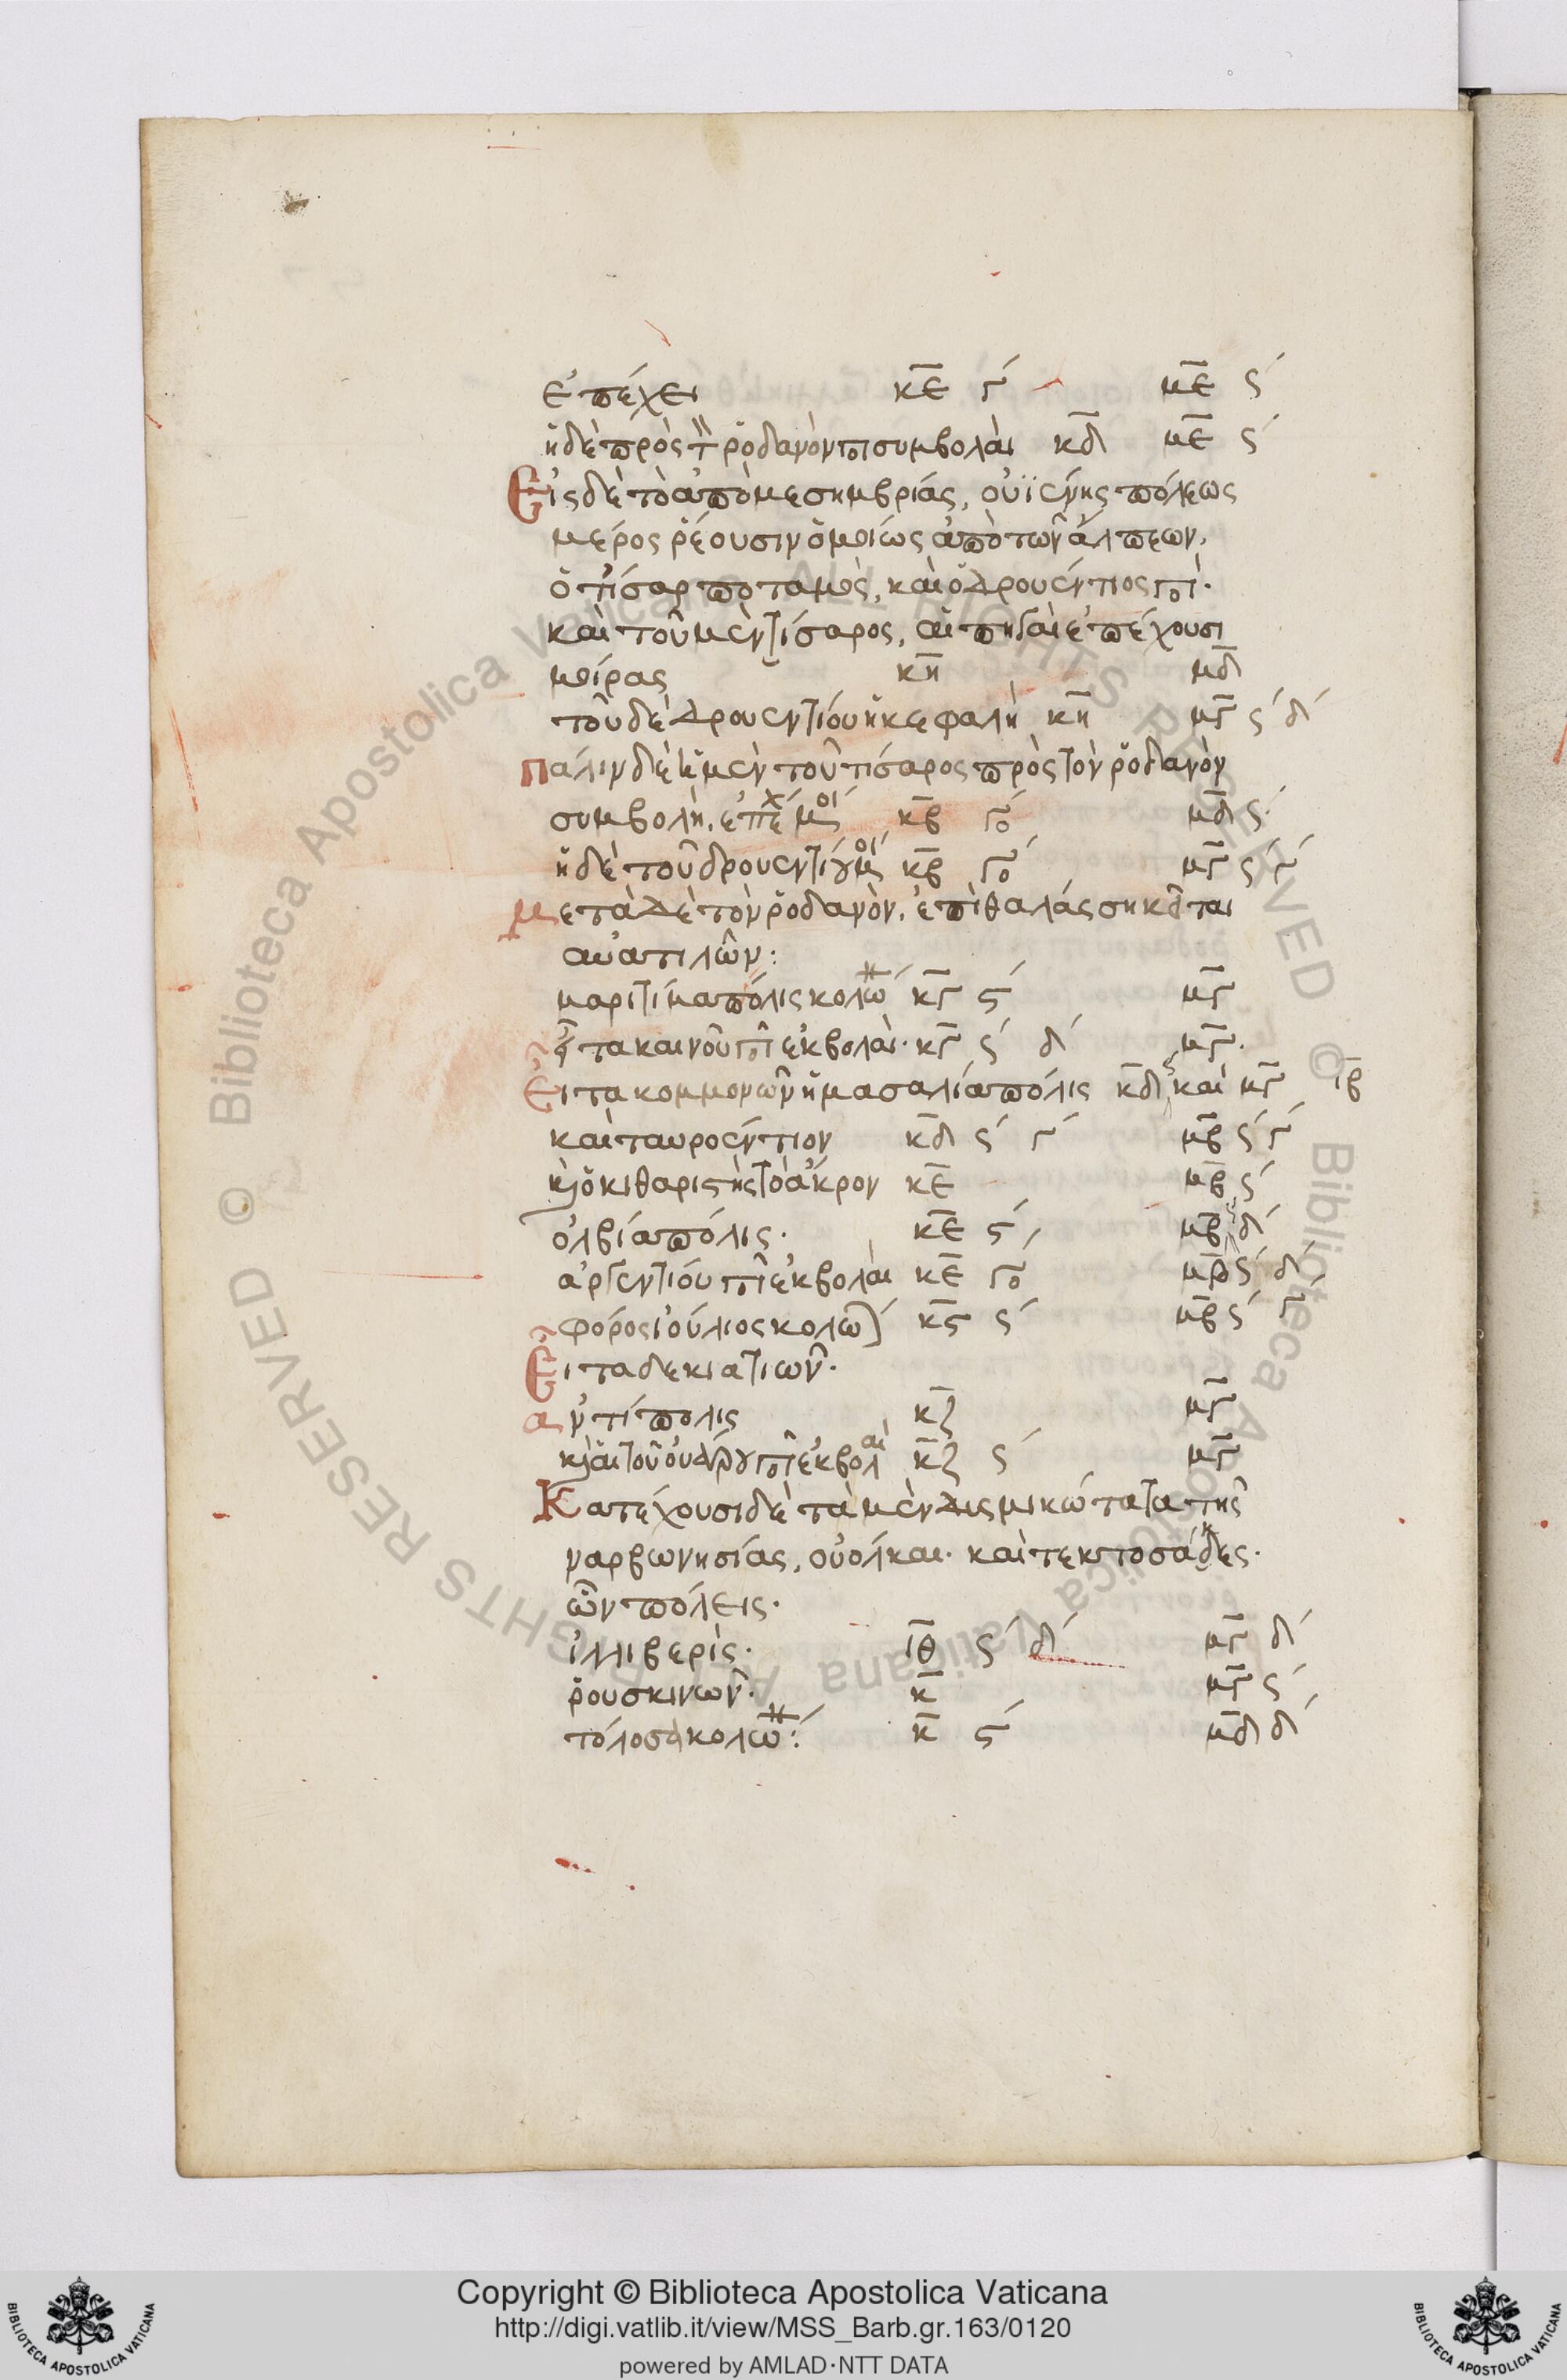 ἐπέχει κε γ´ με ϛ´
ἡ δὲ πρὸς τ ῥοδανὸν πο συμβολαι κδ με ϛ´
Εἰς δὲ τὸ ἀπὸ μεσημβριάς, οὐϊέννης πόλεως
μερός ῥέουσιν ὁμοίως ἀπὸ τῶν ἄλπεων,
ὅ τ᾽ ἴσαρ ποταμὸς, καὶ ὁ Δρουέντιος πο·
καὶ τοῦ μὲν ἴσαρος, αἱ πηγαὶ ἐπέχουσι
μοίρας κη μδ
τοῦ δὲ Δρουεντίου ἡ κεφαλὴ κη μγ ϛ´ δ´
πάλιν δὲ ἡ μὲν τοῦ τίσαρος πρὸς τὸν ῥοδανὸν
συμβολὴ, ἐπέχ μοι κβ γο μδ ϛ´
ἡ δὲ τοῦ δρουεντίου μοι κβ γο μγ ϛ´ γ´
μετὰ δὲ τὸν ῥοδανὸν, ἐπὶ θαλάσσῃ κεῖται
αὐατιλῶν:
μαριτίμα πόλις κολω κγ ϛ´ μγ
εἶτα καινοῦ πο ἐκβολαὶ· κγ ϛ´ δ´ μγ·
Εἶτα κομμονῶν ἡ μασαλία πόλις κδ ϛ´ καὶ μγ ιβ
καὶ ταυροέντιον κδ ϛ´ γ´ μβ ϛ´ γ´
καὶ ὁ κιθαριστὴς τὸ ἄκρον κε μβ ϛ´
ὀλβία πόλις· κε ϛ´ μβ ϛ´ δ´
ἀργεντίου πο ἐκβολαι κε γο μβ ϛ´ δ´
φόρος ἰούλιος κολω κϛ ϛ´ μβ ϛ´ γ´
Εἶτα δεκιατιῶν·
ἀντίπολις κζ μγ
καὶ αἱ τοῦ οὐάρου πο ἐκβολαὶ κζ ϛ´ μγ
Κατέχουσι δὲ τὰ μὲν δισμικώτατα τῆς
ναρβωνησίας, οὐόλκαι· καὶ τεκτοσάκες·
ὧν πόλεις·
ἰλλιβερὶς· ιθ ϛ´ δ´ μγ δ´
ῥουσκινῶν· κ μγ ϛ´
τόλοσα κολω: κ ϛ´ μδ δ´
Copyright © Biblioteca Apostolica Vaticana
http://digi.vatlib.it/view/MSS_Barb.gr.163/0120
powered by AMLAD·NTT DATA